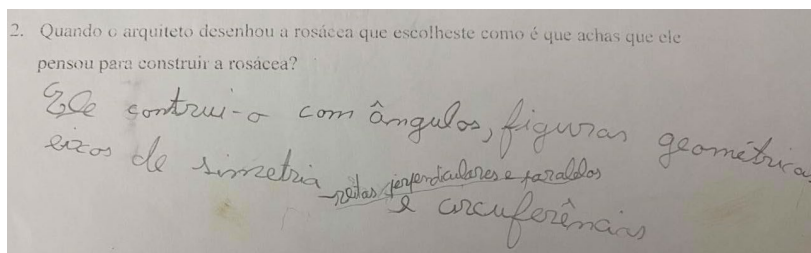 2. Quando o arquiteto desenhou a rosácea que escolheste como é que achas que ele
pensou para construir a rosácea?
Ele contrui-o com ângulos, figuras geométricas
eixos de simetria retas perpendiculares e paralelas
e circuferências